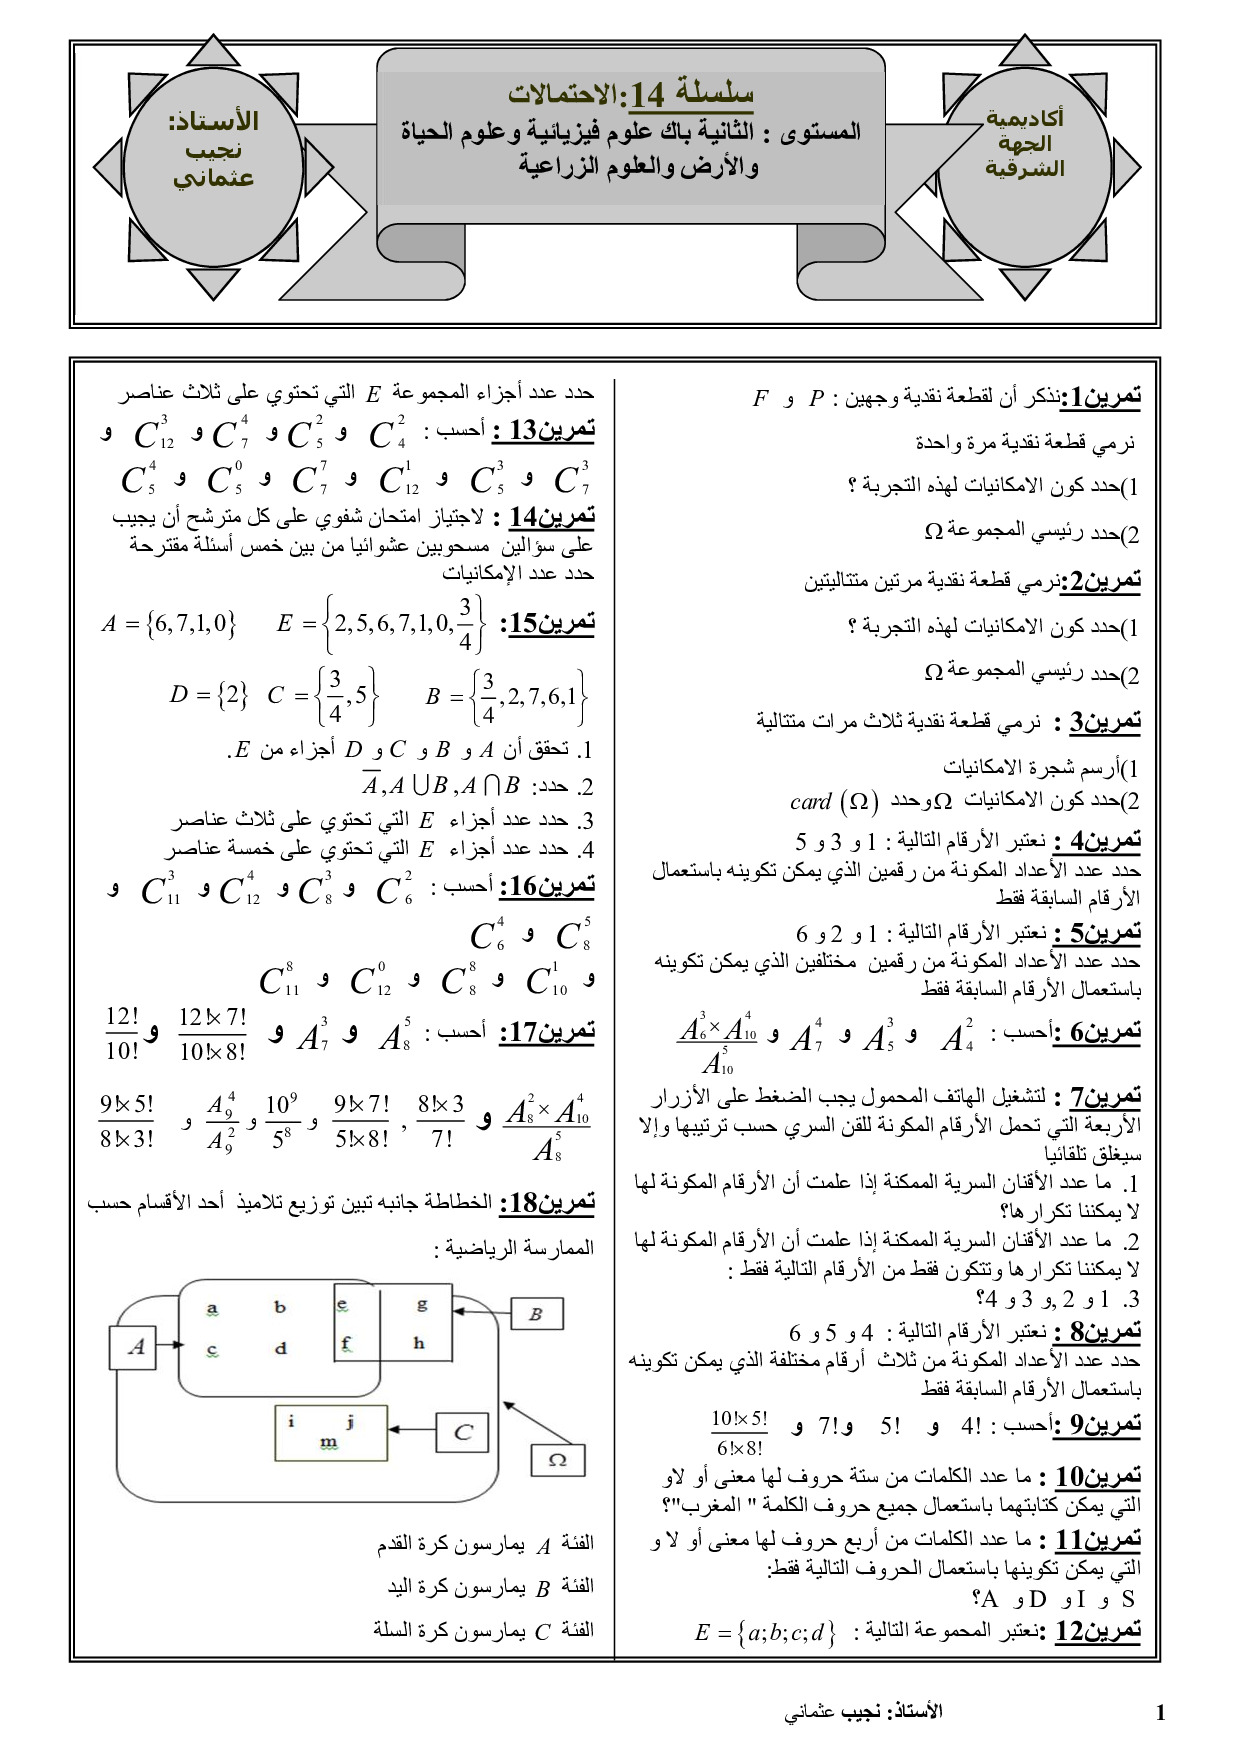 الأستاذ:
نجيب
عثماني
سلسلة 14:الاحتمالات
المستوى : الثانية باك علوم فيزيائية وعلوم الحياة
والأرض والعلوم الزراعية
أكاديمية
الجهة
الشرقية
تمرين1:نذكر أن لقطعة نقدية وجهين : P و F
نرمي قطعة نقدية مرة واحدة
1)حدد كون الامكانيات لهذه التجربة ؟
2)حدد رئيسي المجموعة Ω
تمرين2:نرمي قطعة نقدية مرتين متتاليتين
1)حدد كون الامكانيات لهذه التجربة ؟
2)حدد رئيسي المجموعة Ω
تمرين3 : نرمي قطعة نقدية ثلاث مرات متتالية
1)أرسم شجرة الامكانيات
2)حدد كون الامكانيات Ωوحدد card (Ω)
تمرين4 : نعتبر الأرقام التالية : 1 و 3 و 5
حدد عدد الأعداد المكونة من رقمين الذي يمكن تكوينه باستعمال
الأرقام السابقة فقط
تمرين5 : نعتبر الأرقام التالية : 1 و 2 و 6
حدد عدد الأعداد المكونة من رقمين مختلفين الذي يمكن تكوينه
باستعمال الأرقام السابقة فقط
تمرين6 :أحسب : A_4^2 و A_5^3 و A_7^4 و (A_6^3 × A_10^4)/A_10^5
تمرين7 : لتشغيل الهاتف المحمول يجب الضغط على الأزرار
الأربعة التي تحمل الأرقام المكونة للقن السري حسب ترتيبها وإلا
سيغلق تلقائيا
1. ما عدد الأقنان السرية الممكنة إذا علمت أن الأرقام المكونة لها
لا يمكننا تكرارها؟
2. ما عدد الأقنان السرية الممكنة إذا علمت أن الأرقام المكونة لها
لا يمكننا تكرارها وتتكون فقط من الأرقام التالية فقط :
3. 1 و 2 ,و 3 و 4؟
تمرين8 : نعتبر الأرقام التالية : 4 و 5 و 6
حدد عدد الأعداد المكونة من ثلاث أرقام مختلفة الذي يمكن تكوينه
باستعمال الأرقام السابقة فقط
تمرين9 :أحسب : 4! و 5! و7! و (10!×5!)/(6!×8!)
تمرين10 : ما عدد الكلمات من ستة حروف لها معنى أو لاو
التي يمكن كتابتهما باستعمال جميع حروف الكلمة " المغرب"؟
تمرين11 : ما عدد الكلمات من أربع حروف لها معنى أو لا و
التي يمكن تكوينها باستعمال الحروف التالية فقط:
S و I و D و A؟
تمرين12 :نعتبر المجموعة التالية : E = {a;b;c;d}
حدد عدد أجزاء المجموعة E التي تحتوي على ثلاث عناصر
تمرين13 : أحسب : C_4^2 و C_5^2 و C_7^4 و C_12^3 و
C_7^3 و C_5^3 و C_12^1 و C_7^7 و C_5^0 و C_5^4
تمرين14 : لاجتياز امتحان شفوي على كل مترشح أن يجيب
على سؤالين مسحوبين عشوائيا من بين خمس أسئلة مقترحة
حدد عدد الإمكانيات
تمرين15: E = {2,5,6,7,1,0,3/4} A = {6,7,1,0}
B = {3/4,2,7,6,1} C = {3/4,5} D = {2}
1. تحقق أن A و B و C و D أجزاء من E.
2. حدد: A̅, A ∪ B , A ∩ B
3. حدد عدد أجزاء E التي تحتوي على ثلاث عناصر
4. حدد عدد أجزاء E التي تحتوي على خمسة عناصر
تمرين16: أحسب : C_6^2 و C_8^3 و C_12^4 و C_11^3 و
C_8^5 و C_6^4
و C_10^1 و C_8^8 و C_12^0 و C_11^8
تمرين17: أحسب : A_8^5 و A_7^3 و (12!×7!)/(10!×8!) و 12!/10!
(A_8^2 × A_10^4)/A_8^5 و (8!×3)/7! , (9!×7!)/(5!×8!) و 10^9/5^8 و A_9^4/A_9^2 و (9!×5!)/(8!×3!)
تمرين18: الخطاطة جانبه تبين توزيع تلاميذ أحد الأقسام حسب
الممارسة الرياضية :
a b e g B
A c d f h
i j C
m
Ω
الفئة A يمارسون كرة القدم
الفئة B يمارسون كرة اليد
الفئة C يمارسون كرة السلة
الأستاذ: نجيب عثماني 1